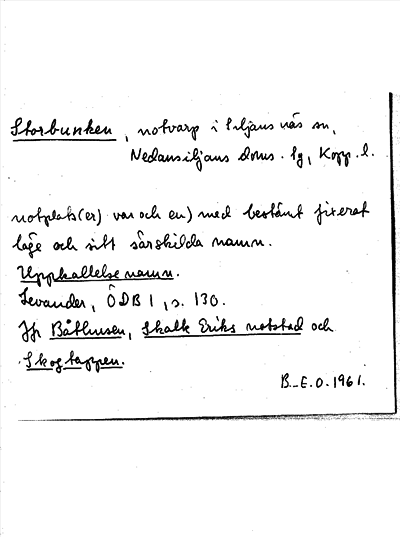 Storbunken, notvarp i Siljans näs sn,
Nedansiljans doms. lg, Kopp. l.
notplats(er) var och en) med bestämt fixerat
läge och sitt särskilda namn.
Uppkallelsenamn.
Levander, ÖDB 1, s. 130.
Jfr Båthusen, Skalk Eriks notstad och
Skogtappen.
B-E.O. 1961.